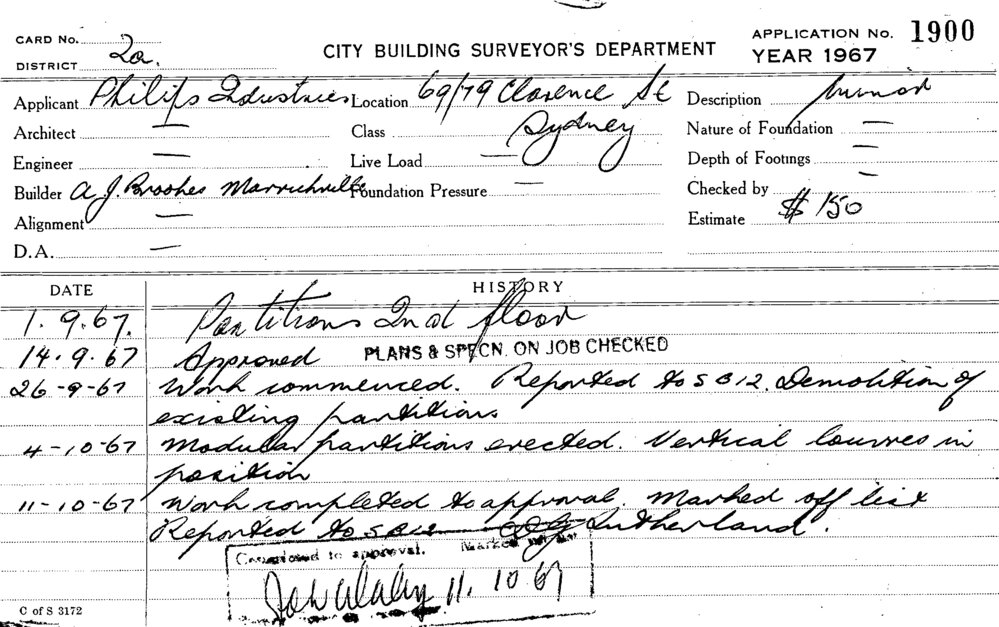 CARD No. 2a.
DISTRICT
CITY BUILDING SURVEYOR'S DEPARTMENT
APPLICATION No. 1900
YEAR 1967
Applicant Philips Industries Location 69/79 Clarence St Description minor
Architect — Class Sydney Nature of Foundation —
Engineer — Live Load — Depth of Footings —
Builder A. J. Brookes Marrickville Foundation Pressure — Checked by —
Alignment — Estimate $150
D.A. —
DATE HISTORY
1.9.67. Partitions 2nd floor
14.9.67 Approved PLANS & SPECN. ON JOB CHECKED
26-9-67 Work commenced. Reported to SB12. Demolition of
existing partitions
4-10-67 Modular partitions erected. Vertical louvres in
position
11-10-67 Work completed to approval. Marked off list
Reported to SB12 Sutherland.
Completed to approval. Marked off list
11.10.67
C of S 3172